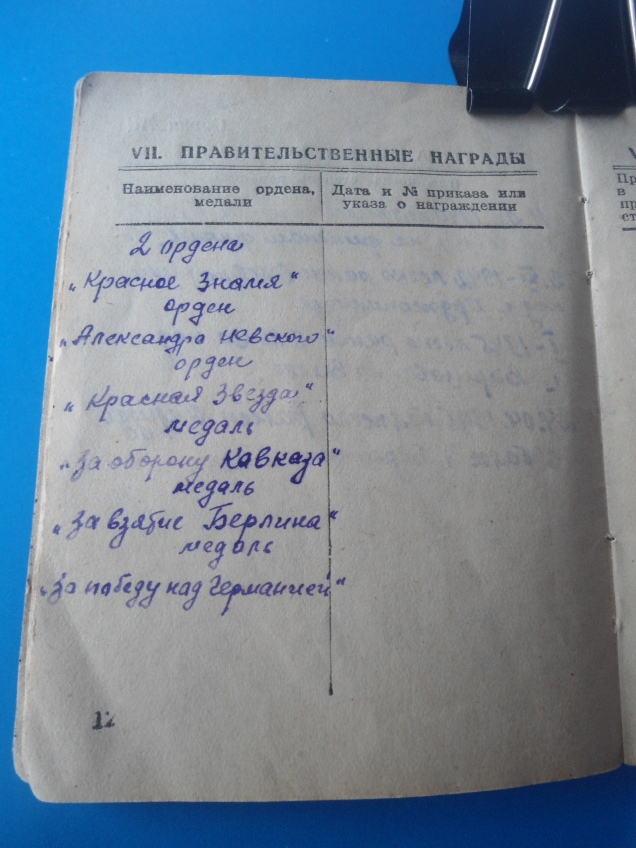 VII. ПРАВИТЕЛЬСТВЕННЫЕ НАГРАДЫ
Наименование ордена, медали
Дата и № приказа или указа о награждении
2 ордена
„Красное Знамя“
орден
„Александра Невского“
орден
„Красная Звезда“
медаль
„За оборону Кавказа“
медаль
„За взятие Берлина“
медаль
„За победу над Германией“
12